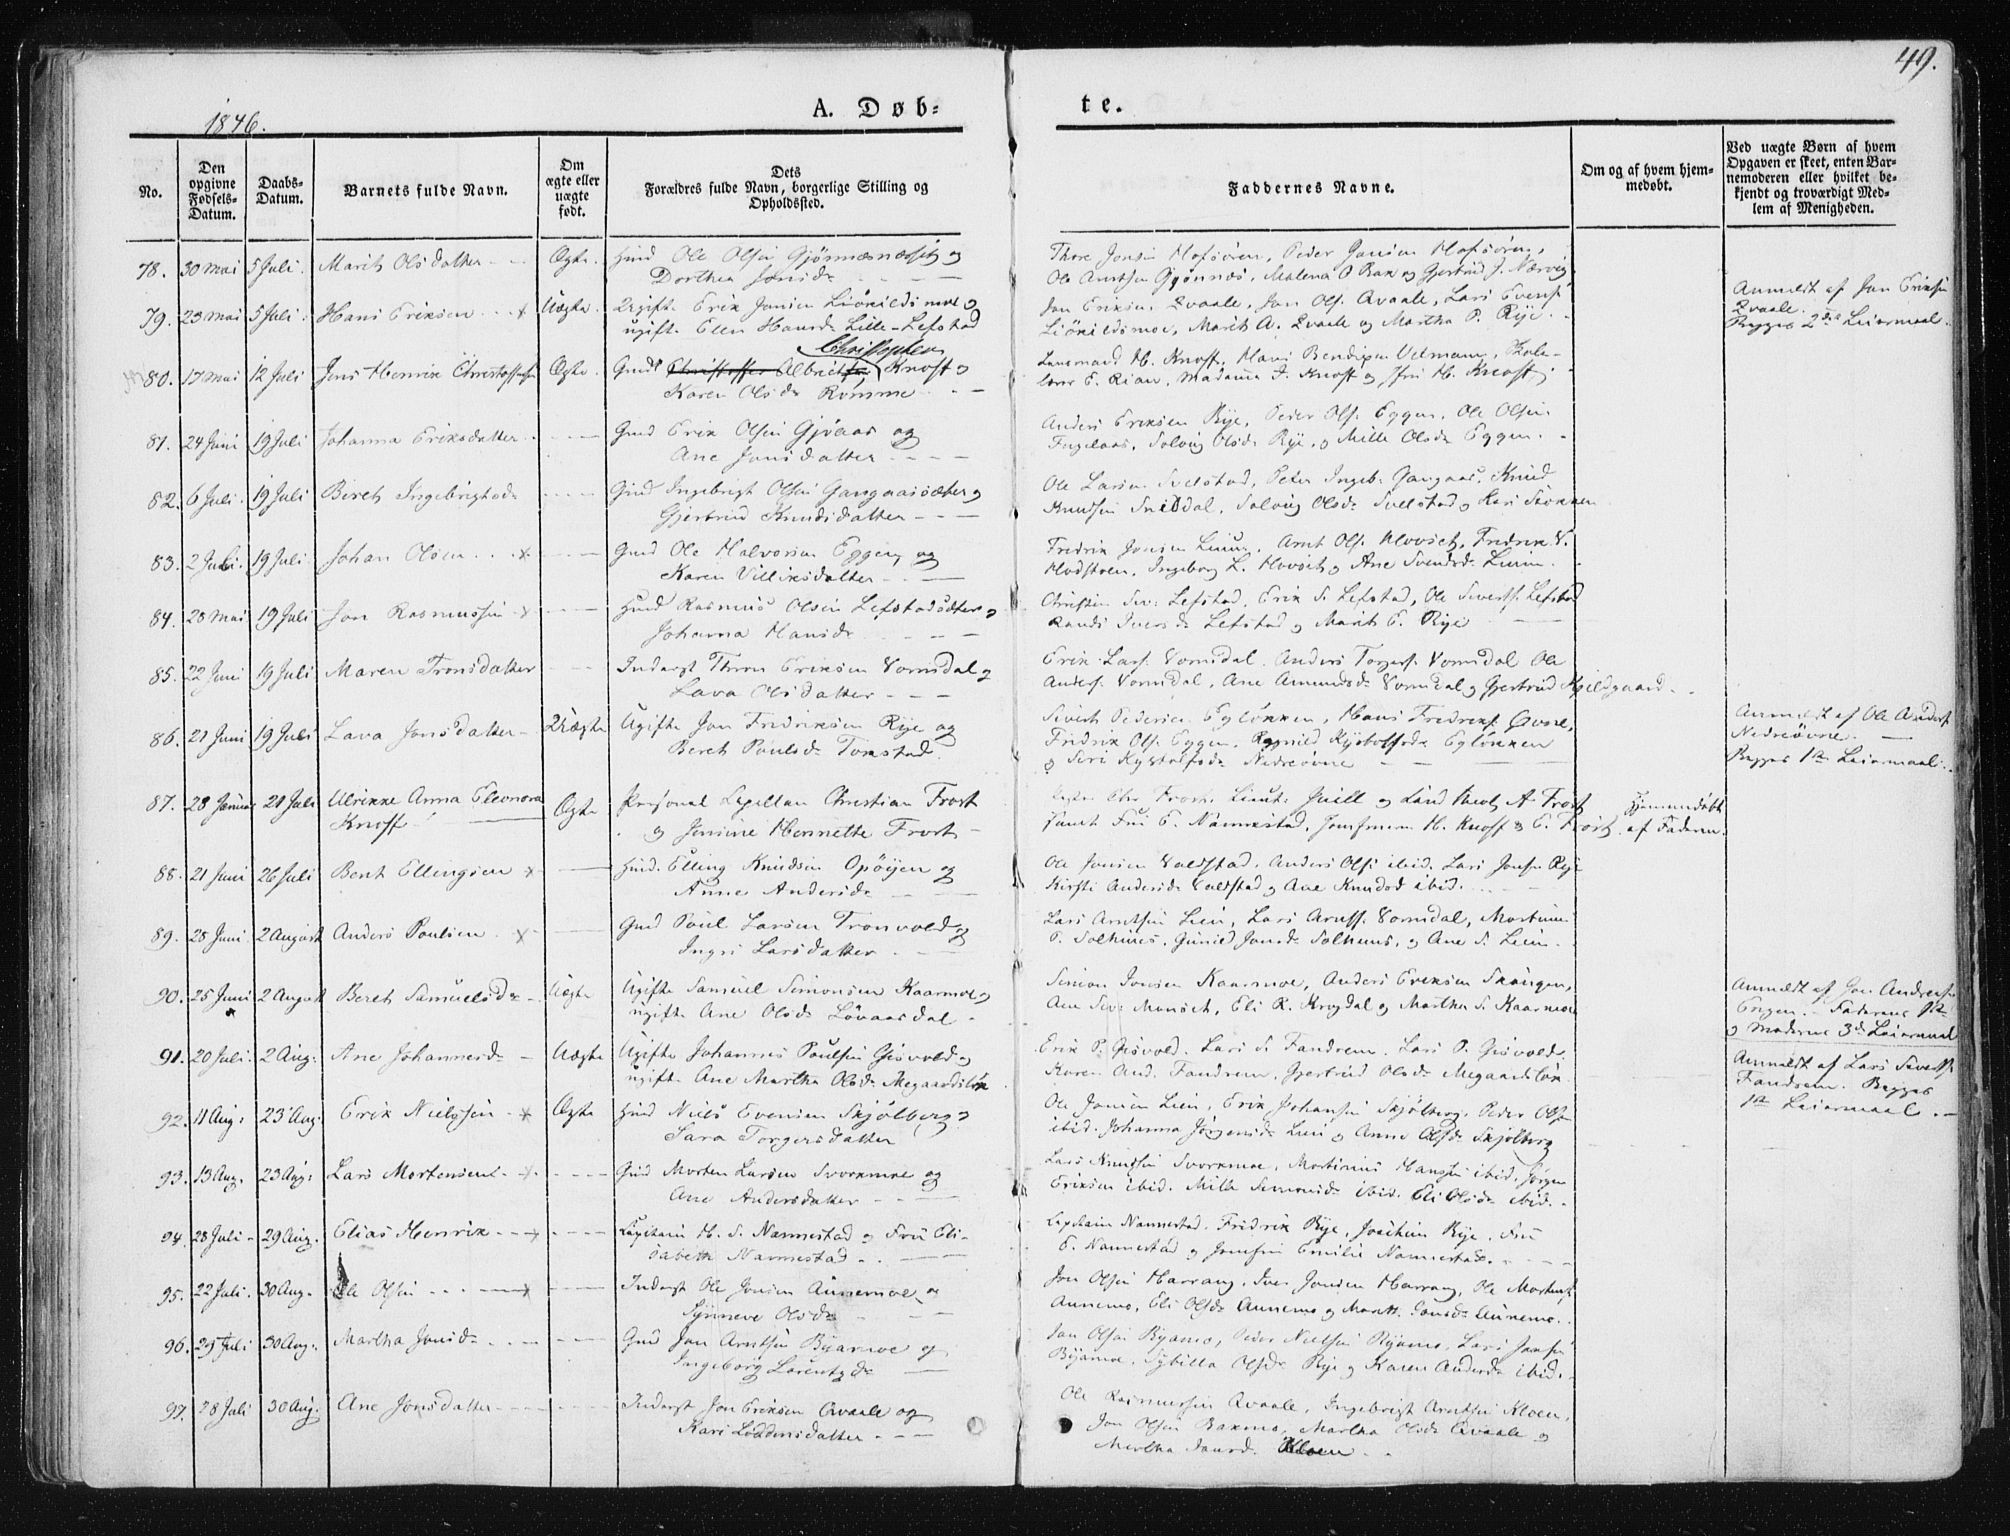 49.
1846.
A. Døb-
te.
No.
Den opgivne Fødsels-Datum.
Daabs-Datum.
Barnets fulde Navn.
Om ægte eller uægte født.
Dets Forældres fulde Navn, borgerlige Stilling og Opholdssted.
Faddernes Navne.
Om og af hvem hjem-medøbt.
Ved uægte Børn af hvem Opgaven er skeet, enten Bar-nemoderen eller hvilket be-kjendt og troværdigt Med-lem af Menigheden.
78. 30 Mai 5 Juli. Marit Olsdatter Ægte. Huusd Ole Olsen Gjønnæs og
Dorthea Jonsd.
Thore Jonsen Hofsøren, Peder Hofsøren,
Ole Arntsen Gjønnæs, Malena O Bak og Gjertrud J. Nærvig
79. 23 Mai 5 Juli. Hans Eriksen Uægte. Ugifte Erik Jonsen og
ugift. Elen Hansd. Lille-Lefstad
Jan Eriksen Qvaale, Jon Ols. Qvaale, Lars Evens.
Marit A. Qvaale og Martha P. Rye.
Anmeldt af Jon Eriksen
Qvaale.
Begges 2de Leiermaal.
80. 17 Mai 12 Juli Jens Henrik Christoffersen Ægte. Gmd Christopher Albrit Knoff og
Karen Olsd. Romme
H. Knoff, Hans Bendixen Velmann, Skole-
lærer E. Rian, Madame J. Knoff og Jfr. H. Knoff
81. 24 Juni 19 Juli Johanna Eriksdatter Gmd Erik Olsen Gjøaas og
Ane Jonsdatter
Anders Eriksen Rye, Peder Ols. Eggen, Ole Olsen
Solvig Olsd. Rye, og Mille Olsd. Eggen.
82. 6 Juli. 19 Juli Beret Ingebrigtsd. Gmd Ingebrigt Olsen Gangaassæter og
Gjertrud Knudsdatter
Ole Larsen Svelstad, Peter Ingeb. Gangaas, Knud
Knudsen Snildal, Solvig Olsd. Svelstad og Kari
83. 2 Juli. 19 Juli. Johan Olsen Gmd Ole Halvorsen Eggen og
Karen Villiksdatter
Fredrik Jonsen Lium, Arnt Ols. Hovset, Fredrik V.
Ingeborg L. Hovset og Ane Svendsd. Lium.
84. 28 Mai 19 Juli Jon Rasmussen Huusd Rasmus Olsen Lefstadsæter og
Johanna Hansd.
Christen Siv. Lefstad, Erik S. Lefstad, Ole Sivertsen Lefstad
Randi Iversd. Lefstad og Marit E. Rye
85. 22 Juni 19 Juli Maren Tronsdatter Inderst Thron Eriksen Vormdal og
Lava Olsdatter
Erik Lars. Vormdal, Anders Torgers. Vormdal Ole
Anders. Vormdal, Ane Amundsd. Vormdal og Gjertrud
86. 21 Juni 19 Juli Lava Jonsdatter Uægte Ugifte Jon Fredriksen Rye og
Beret Poulsd. Tomstad.
Sivert Pedersen Egløkken, Hans Fredriks. Øvre,
Fredrik Ols. Eggen, Egløkken
og Siri
Anmeldt af Ole Anders.
Begges 1ste Leiermaal.
87. 28 Januar 21 Juli Ulrikke Anna Eleonora
Knoff Ægte Personal Capellan Christian Frost
og Jensine Henriette Frost
og Cand theol A Frost
samt Fru E. Nannestad, H. Knoff og E. Frost.
Hjemmedøbt
af Faderen.
88. 21 Juni 26 Juli Bent Ellingsen Huusd. Elling Knudsen Opøyen og
Anne Andersd.
Ole Jonsen Valdstad, Anders Ols. ibid. Lars Jons. Rye
Kirsti Andersd. Valdstad og Ane Knudsd. ibid.
89. 28 Juni 2 August Anders Poulsen Gmd Poul Larsen Tronvold og
Ingri Larsdatter
Lars Arntsen Lien, Lars Vormdal, Mortinus
Gunild Jonsd. og Ane S. Lien.
90. 25 Juni 2 August Beret Samuelsd. Uægte Ugifte Samuel Simonsen Kaarmoe og
ugift. Ane Olsd. Løvaasdal
Simon Jonsen Kaarmoe, Anders Eriksen Skaugen,
Ane Siv. Monset, Eli R. Krogdal og Martha S. Kaarmoe
Anmeldt af Jon Andersen
Engen. Faderens 1ste
og Moderens 3die Leiermaal
91. 20 Juli. 2 Aug. Ane Johannesd. Uægte Ugifte Johannes Poulsen Gisvold og
ugift. Ane Martha Olsd. Megaardsløk
Erik P. Gisvold, Lars S. Fandrem, Lars P. Gisvold,
Karen And. Fandrem, Gjertrud Olsd. Megaardsløk.
Anmeldt af Lars Sivertsen
Fandrem. Begges
1ste Leiermaal.
92. 11 Aug. 23 Aug. Erik Nielssen Ægte Huusd Niels Evensen Skjølberg og
Sara Torgersdatter
Ole Jonsen Lien, Erik Johansen Skjølberg, Peder Ols.
ibid. Johanna Jørgensd. Lien og Anne Olsd. Skjølberg
93. 13 Aug. 23 Aug. Lars Mortensen Gmd Morten Larsen Svorkmoe og
Ane Andersdatter
Lars Knudsen Svorkmoe, Mortinus Hansen ibid. Jørgen
Eriksen ibid. Mille Simonsd. ibid. Eli Olsd. ibid.
94. 28 Juli 29 Aug. Elias Henrik Capitain H. S. Nannestad og Fru Eli-
sabeth Nannestad
Capitain Nannestad, Fridrik Rye, Joachim Rye, Fru
E. Nannestad og Jomfru Emilie Nannestad.
95. 22 Juli. 30 Aug. Ole Olsen Inderst Ole Jonsen Aunemoe og
Synneve Olsd.
Jon Olsen Harrang, Iver Jonsen Harrang, Ole Mortens.
Aunemo, Eli Olsd. Aunemo og Marit Jonsd. Aunemo.
96. 29 Juli 30 Aug. Martha Jonsd. Gmd Jon Arntsen Byamoe og
Ingeborg Larentsd.
Jon Olsen Byamo, Peder Nielsen Byamo, Lars Jonsen
Byamoe, Sybilla Olsd. Rye og Karen Andersd. ibid.
97. 28 Juli 30 Aug. Ane Jonsdatter Inderst Jon Eriksen Qvaale og
Kari Loddensdatter
Ole Rasmussen Qvaale, Ingebrigt Arntsen Kloen,
Jon Olsen Bakmo, Martha Olsd. Qvaale og
Martha Jonsd. Kloen